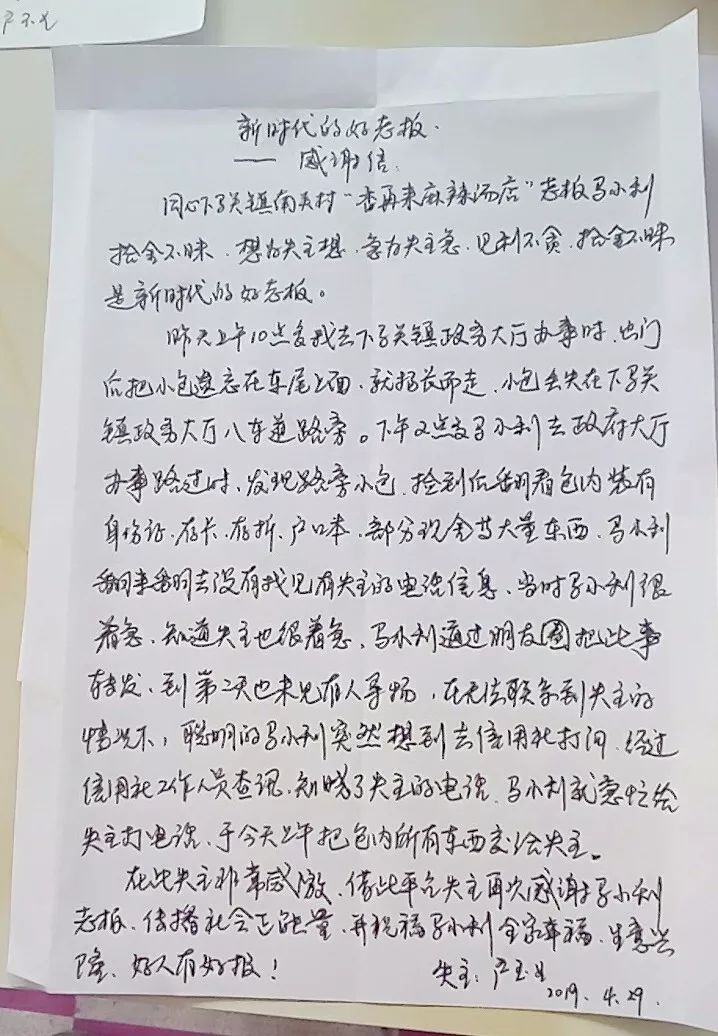 新时代的好老板.
—— 感谢信.
同心下马关镇南关村“香再来麻辣汤店”老板马小利
拾金不昧、想为失主想、急为失主急、见利不贪、拾金不昧
是新时代的好老板。
昨天上午10点多我去下马关镇政务大厅办事时、出门
后把小包遗忘在车尾上面、就扬长而走、小包丢失在下马关
镇政务大厅八车道路旁。下午2点多马小利去政府大厅
办事路过时、发现路旁小包、捡到后翻看包内装有
身份证、存卡、存折、户口本、部分现金等大量东西、马小利
翻来翻去没有找见有失主的电话信息、当时马小利很
着急、知道失主也很着急、马小利通过朋友圈把此事
转发、到第二天也未见有人寻物、在无法联系到失主的
情况下、聪明的马小利突然想到去信用社打问、经过
信用社工作人员查询、知晓了失主的电话、马小利就急忙给
失主打电话、于今天上午把包内所有东西交给失主。
在此失主非常感激、借此平台失主再次感谢马小利
老板、传播社会正能量、并祝福马小利全家幸福、生意兴
隆、好人有好报！
失主：严玉
2019.4.29.